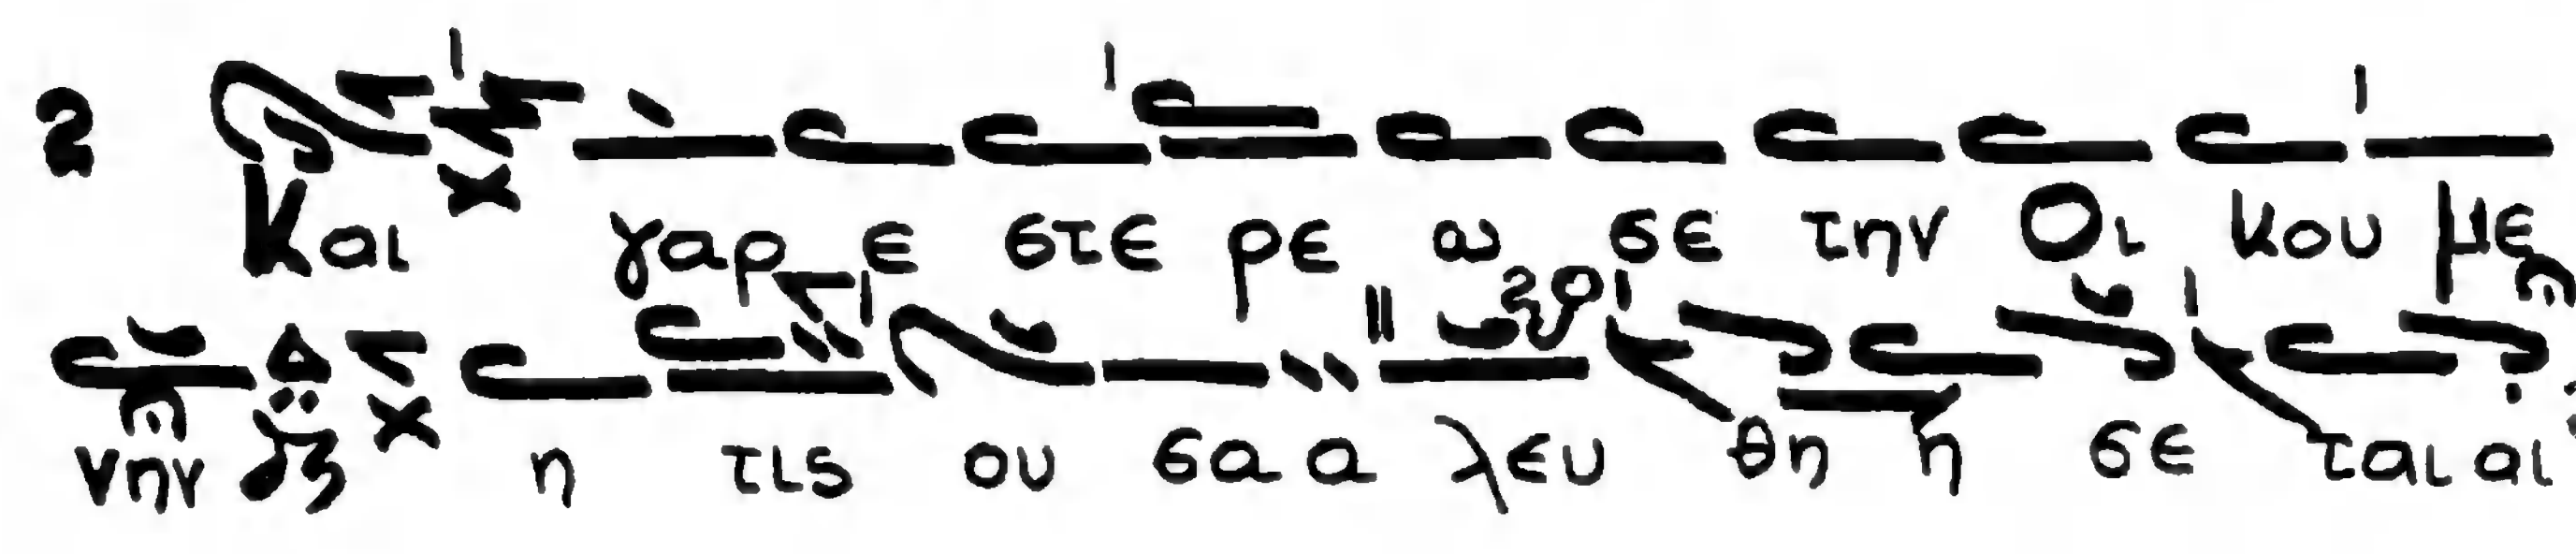 2 Και γαρ ε στε ρε ω σε την Οι κου με
νην η τις ου σα α λευ θη η σε ται αι